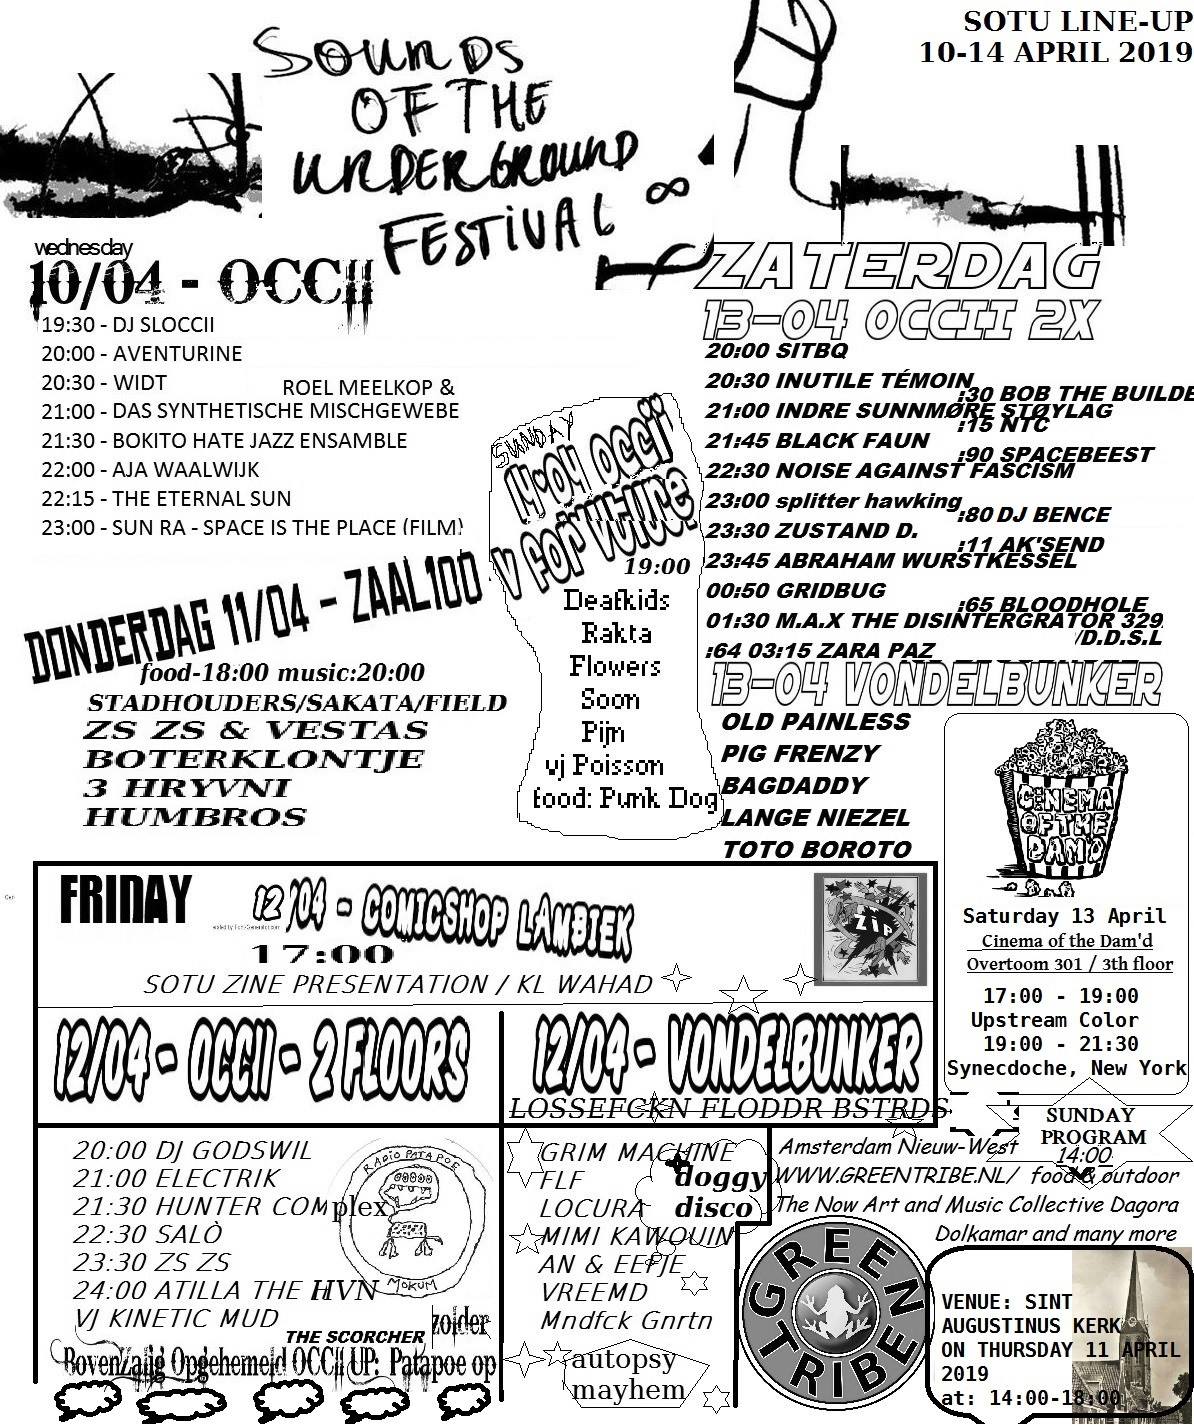 SOTU LINE-UP
10-14 APRIL 2019
SOUNDS
OF THE
UNDERGROUND
FESTIVAL ∞
wednesday
10/04 - OCCII
19:30 - DJ SLOCCII
20:00 - AVENTURINE
20:30 - WIDT
ROEL MEELKOP &
21:00 - DAS SYNTHETISCHE MISCHGEWEBE
21:30 - BOKITO HATE JAZZ ENSAMBLE
22:00 - AJA WAALWIJK
22:15 - THE ETERNAL SUN
23:00 - SUN RA - SPACE IS THE PLACE (FILM)
DONDERDAG 11/04 - ZAAL100
food-18:00 music:20:00
STADHOUDERS/SAKATA/FIELD
ZS ZS & VESTAS
BOTERKLONTJE
3 HRYVNI
HUMBROS
SUNDAY
14.04 OCCII
V for Vuture
19:00
Deafkids
Rakta
Flowers
Soon
Pijn
vj Poisson
food: Punk Dog
ZATERDAG
13-04 OCCII 2X
20:00 SITBQ
20:30 INUTILE TÉMOIN
:30 BOB THE BUILDE
21:00 INDRE SUNNMØRE STØYLAG
:15 NTC
21:45 BLACK FAUN
:90 SPACEBEEST
22:30 NOISE AGAINST FASCISM
23:00 splitter hawking
:80 DJ BENCE
23:30 ZUSTAND D.
:11 AK'SEND
23:45 ABRAHAM WURSTKESSEL
00:50 GRIDBUG
:65 BLOODHOLE
01:30 M.A.X THE DISINTERGRATOR 329
/D.D.S.L
:64 03:15 ZARA PAZ
13-04 VONDELBUNKER
OLD PAINLESS
PIG FRENZY
BAGDADDY
LANGE NIEZEL
TOTO BOROTO
CINEMA
OF THE
DAM'D
Saturday 13 April
Cinema of the Dam'd
Overtoom 301 / 3th floor
17:00 - 19:00
Upstream Color
19:00 - 21:30
Synecdoche, New York
FRIDAY
12/04 - COMICSHOP LAMBIEK
17:00
SOTU ZINE PRESENTATION / KL WAHAD
ZIP
12/04 - OCCII - 2 FLOORS
20:00 DJ GODSWIL
21:00 ELECTRIK
21:30 HUNTER COMplex
22:30 SALÒ
23:30 ZS ZS
24:00 ATILLA THE HVN
VJ KINETIC MUD
RADIO PATAPOE
MOKUM
THE SCORCHER
zolder
BovenZalig Opgehemeld OCCii UP: Patapoe op
12/04 - VONDELBUNKER
LOSSEFCKN FLODDR BSTRDS
GRIM MACHINE
FLF
LOCURA
MIMI KAWOUIN
AN & EEFJE
VREEMD
Mndfck Gnrtn
doggy
disco
autopsy
mayhem
SUNDAY
PROGRAM
14:00
Amsterdam Nieuw-West
WWW.GREENTRIBE.NL/ food & outdoor
The Now Art and Music Collective Dagora
Dolkamar and many more
GREEN
TRIBE
VENUE: SINT
AUGUSTINUS KERK
ON THURSDAY 11 APRIL
2019
at: 14:00-18:00